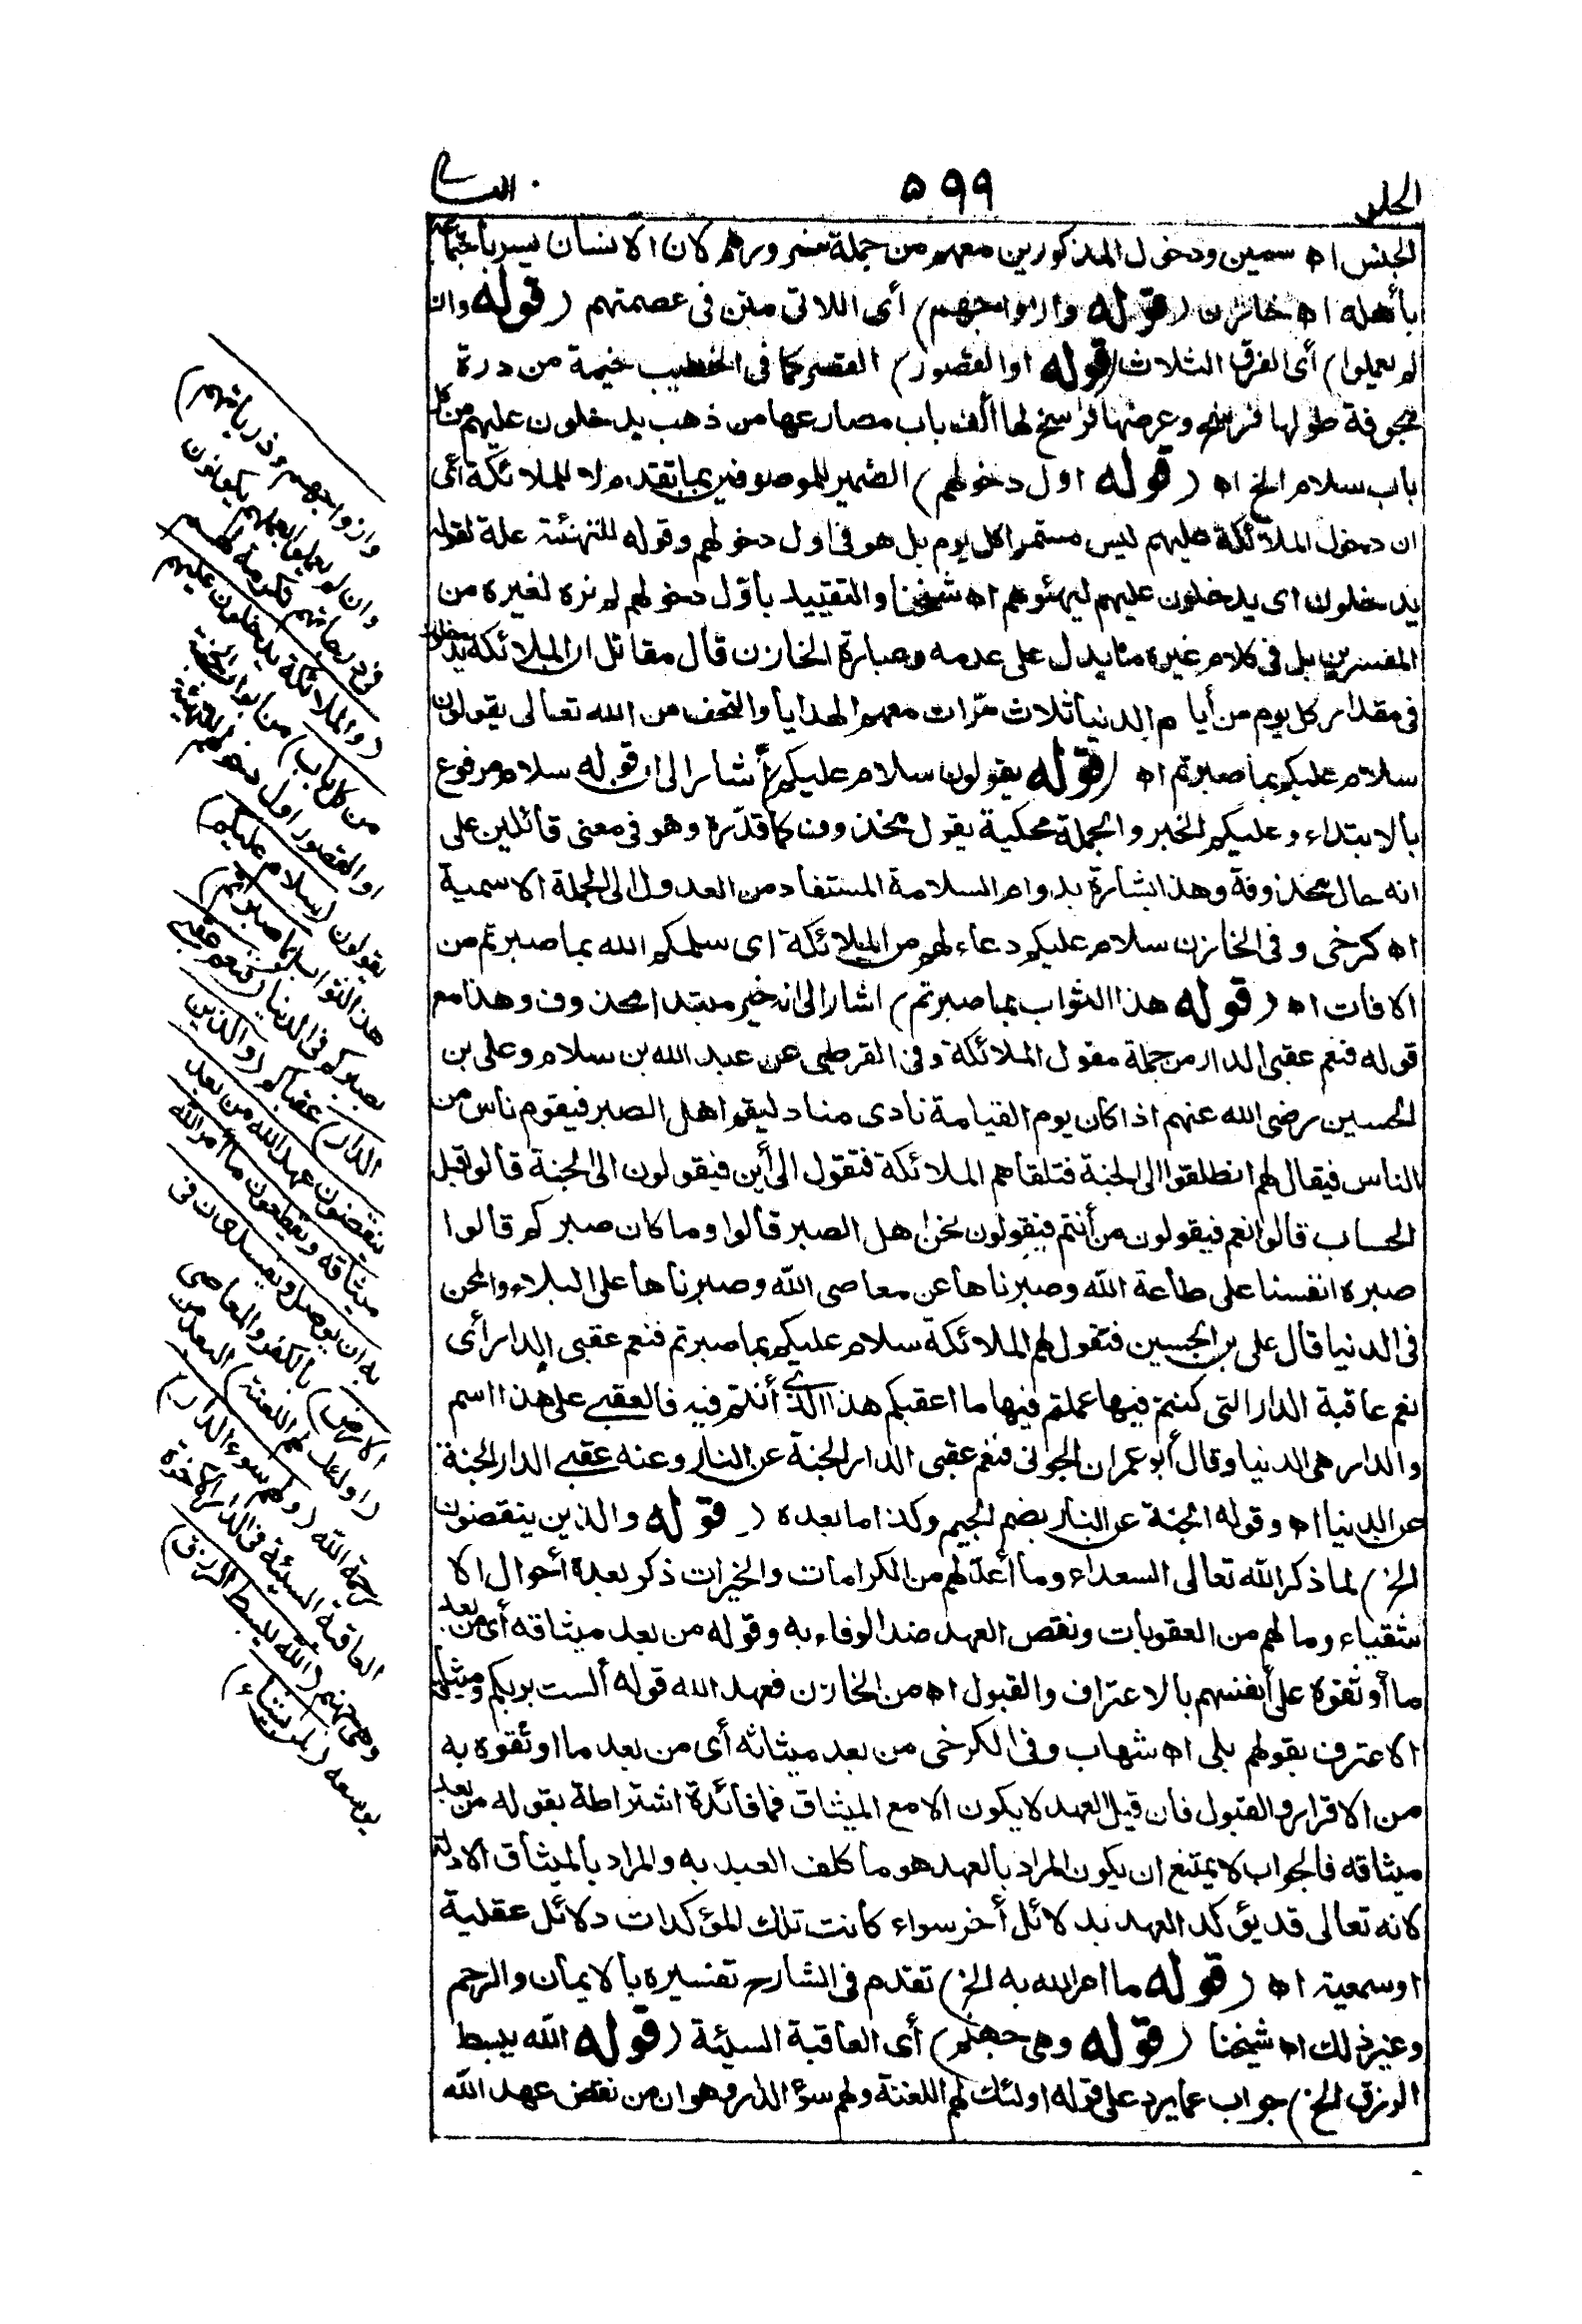 ٥٩٩
الجنس اه سمين ودخول المذكورين معهم من جملة سرورهم لان الانسان يسر باجتماعه
بأهله اه خازن (قوله وازواجهم) أى اللاتى متن فى عصمتهم (قوله وان
لم يعملوا) أى الفرق الثلاث (قوله او القصور) القصر كما فى الخطيب خيمة من درة
مجوفة طولها فرسخ وعرضها فرسخ لها ألف باب مصارعها من ذهب يدخلون عليهم من كل
باب سلام الخ اه (قوله اول دخولهم) الضمير للموصوفين بما تقدم لا للملائكة أى
ان دخول الملائكة عليهم ليس مستمرا كل يوم بل هو فى اول دخولهم وقوله للتهنئة علة لقوله
يدخلون اى يدخلون عليهم ليهنئوهم اه شيخنا والتقييد بأوّل دخولهم لم نره لغيره من
المفسرين بل فى كلام غيره ما يدل على عدمه وعبارة الخازن قال مقاتل ان الملائكة يدخلون
فى مقدار كل يوم من أيام الدنيا ثلاث مرّات معهم الهدايا والتحف من الله تعالى يقولون
سلام عليكم بما صبرتم اه (قوله يقولون سلام عليكم) أشار الى ان قوله سلام مرفوع
بالابتداء وعليكم الخبر والجملة محكية بقول محذوف كما قدّره وهو فى معنى قائلين على
انه حال محذوفة وهذا بشارة بدوام السلامة المستفاد من العدول الى الجملة الاسمية
اه كرخى وفى الخازن سلام عليكم دعاء لهم من الملائكة اى سلمكم الله بما صبرتم من
الافات اه (قوله هذا الثواب بما صبرتم) اشار الى انه خبر مبتدا محذوف وهذا مع
قوله فنعم عقبى الدار من جملة مقول الملائكة وفى القرطبى عن عبد الله بن سلام وعلى بن
الحسين رضى الله عنهم اذا كان يوم القيامة نادى مناد ليقم اهل الصبر فيقوم ناس من
الناس فيقال لهم انطلقوا الى الجنة فتلقاهم الملائكة فتقول الى أين فيقولون الى الجنة قالوا قبل
الحساب قالوا نعم فيقولون من أنتم فيقولون نحن اهل الصبر قالوا وما كان صبركم قالوا
صبره انفسنا على طاعة الله وصبرناها عن معاصى الله وصبرناها على البلاء والمحن
فى الدنيا قال على بن الحسين فتقول لهم الملائكة سلام عليكم بما صبرتم فنعم عقبى الدار أى
نعم عاقبة الدار التى كنتم فيها عملتم فيها ما اعقبكم هذا الذى أنتم فيه فالعقبى على هذا اسم
والدار هى الدنيا وقال أبو عمران الجونى فنعم عقبى الدار الجنة عن النار وعنه عقبى الدار الجنة
عن الدنيا اه وقوله الجنة عن النار بضم الجيم وكذا ما بعده (قوله والذين ينقضون
الخ) لما ذكر الله تعالى السعداء وما أعدّ لهم من الكرامات والخيرات ذكر بعده أحوال الا
شقياء وما لهم من العقوبات ونقض العهد ضد الوفاء به وقوله من بعد ميثاقه أى من بعد
ما أوثقوه على أنفسهم بالاعتراف والقبول اه من الخازن فعهد الله قوله ألست بربكم وميثاقه
الاعترف بقولهم بلى اه شهاب وفى الكرخى من بعد ميثاثه أى من بعد ما اوثقوه به
من الاقرار والقبول فان قيل العهد لا يكون الا مع الميثاق فما فائدة اشتراطة بقوله من بعد
ميثاقه فالجواب لا يمتنع ان يكون المراد بالعهد هو ما كلف العبد به والمراد بالميثاق الادلة
لانه تعالى قد يؤكد العهد بدلائل أخر سواء كانت تلك المؤكدات دلائل عقلية
او سمعية اه (قوله ما امر الله به الخ) تقدم فى الشارح تفسيره بالايمان والرحم
وغير ذلك اه شيخنا (قوله وهى جهنم) أى العاقبة السيئة (قوله الله يبسط
الرزق الخ) جواب عما يرد على قوله اولئك لهم اللعنة ولهم سؤ الدار وهو ان من نقض عهد الله
وازواجهم وذرياتهم)
وان لم يعملوا بعملهم يكونون
فى درجاتهم تكرمة لهم
(والملائكة يدخلون عليهم
من كل باب) من ابواب الجنة
او القصور اول دخولهم للتهنئة
يقولون (سلام عليكم)
هذا الثواب (بما صبرتم)
بصبركم فى الدنيا (فنعم عقبى
الدار) عقباكم (والذين
ينقضون عهد الله من بعد
ميثاقه ويقطعون ما أمر الله
به ان يوصل ويفسدون فى
الارض) بالكفر والمعاصى
(اولئك لهم اللعنة) البعد من
رحمة الله (ولهم سوء الدار)
العاقبة السيئة فى الدار الآخرة
وهى جهنم (الله يبسط الرزق)
يوسعه (لمن يشاء)